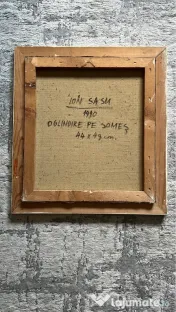 ION SASU
1990
OGLINDIRE PE SOMEȘ
44 x 49 cm.
Lajumate